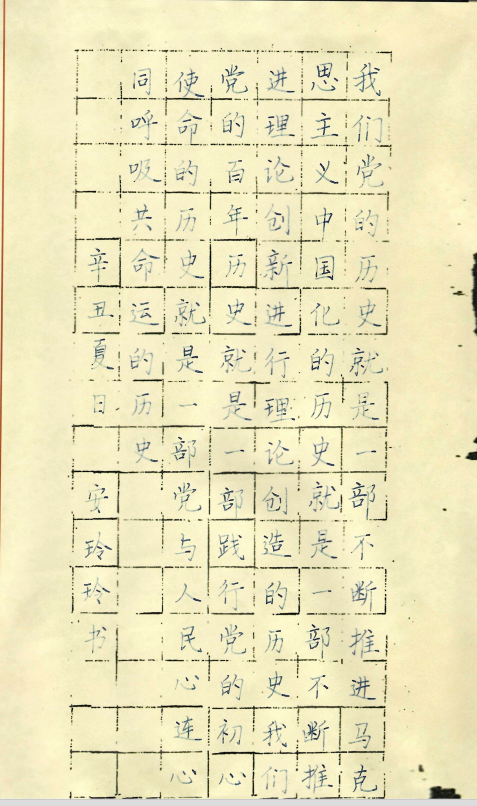 我们党的历史就是一部不断推进马克
思主义中国化的历史就是一部不断推
进理论创新进行理论创造的历史我们
党的百年历史就是一部践行党的初心
使命的历史就是一部党与人民心连心
同呼吸共命运的历史
辛丑夏日 安玲玲书